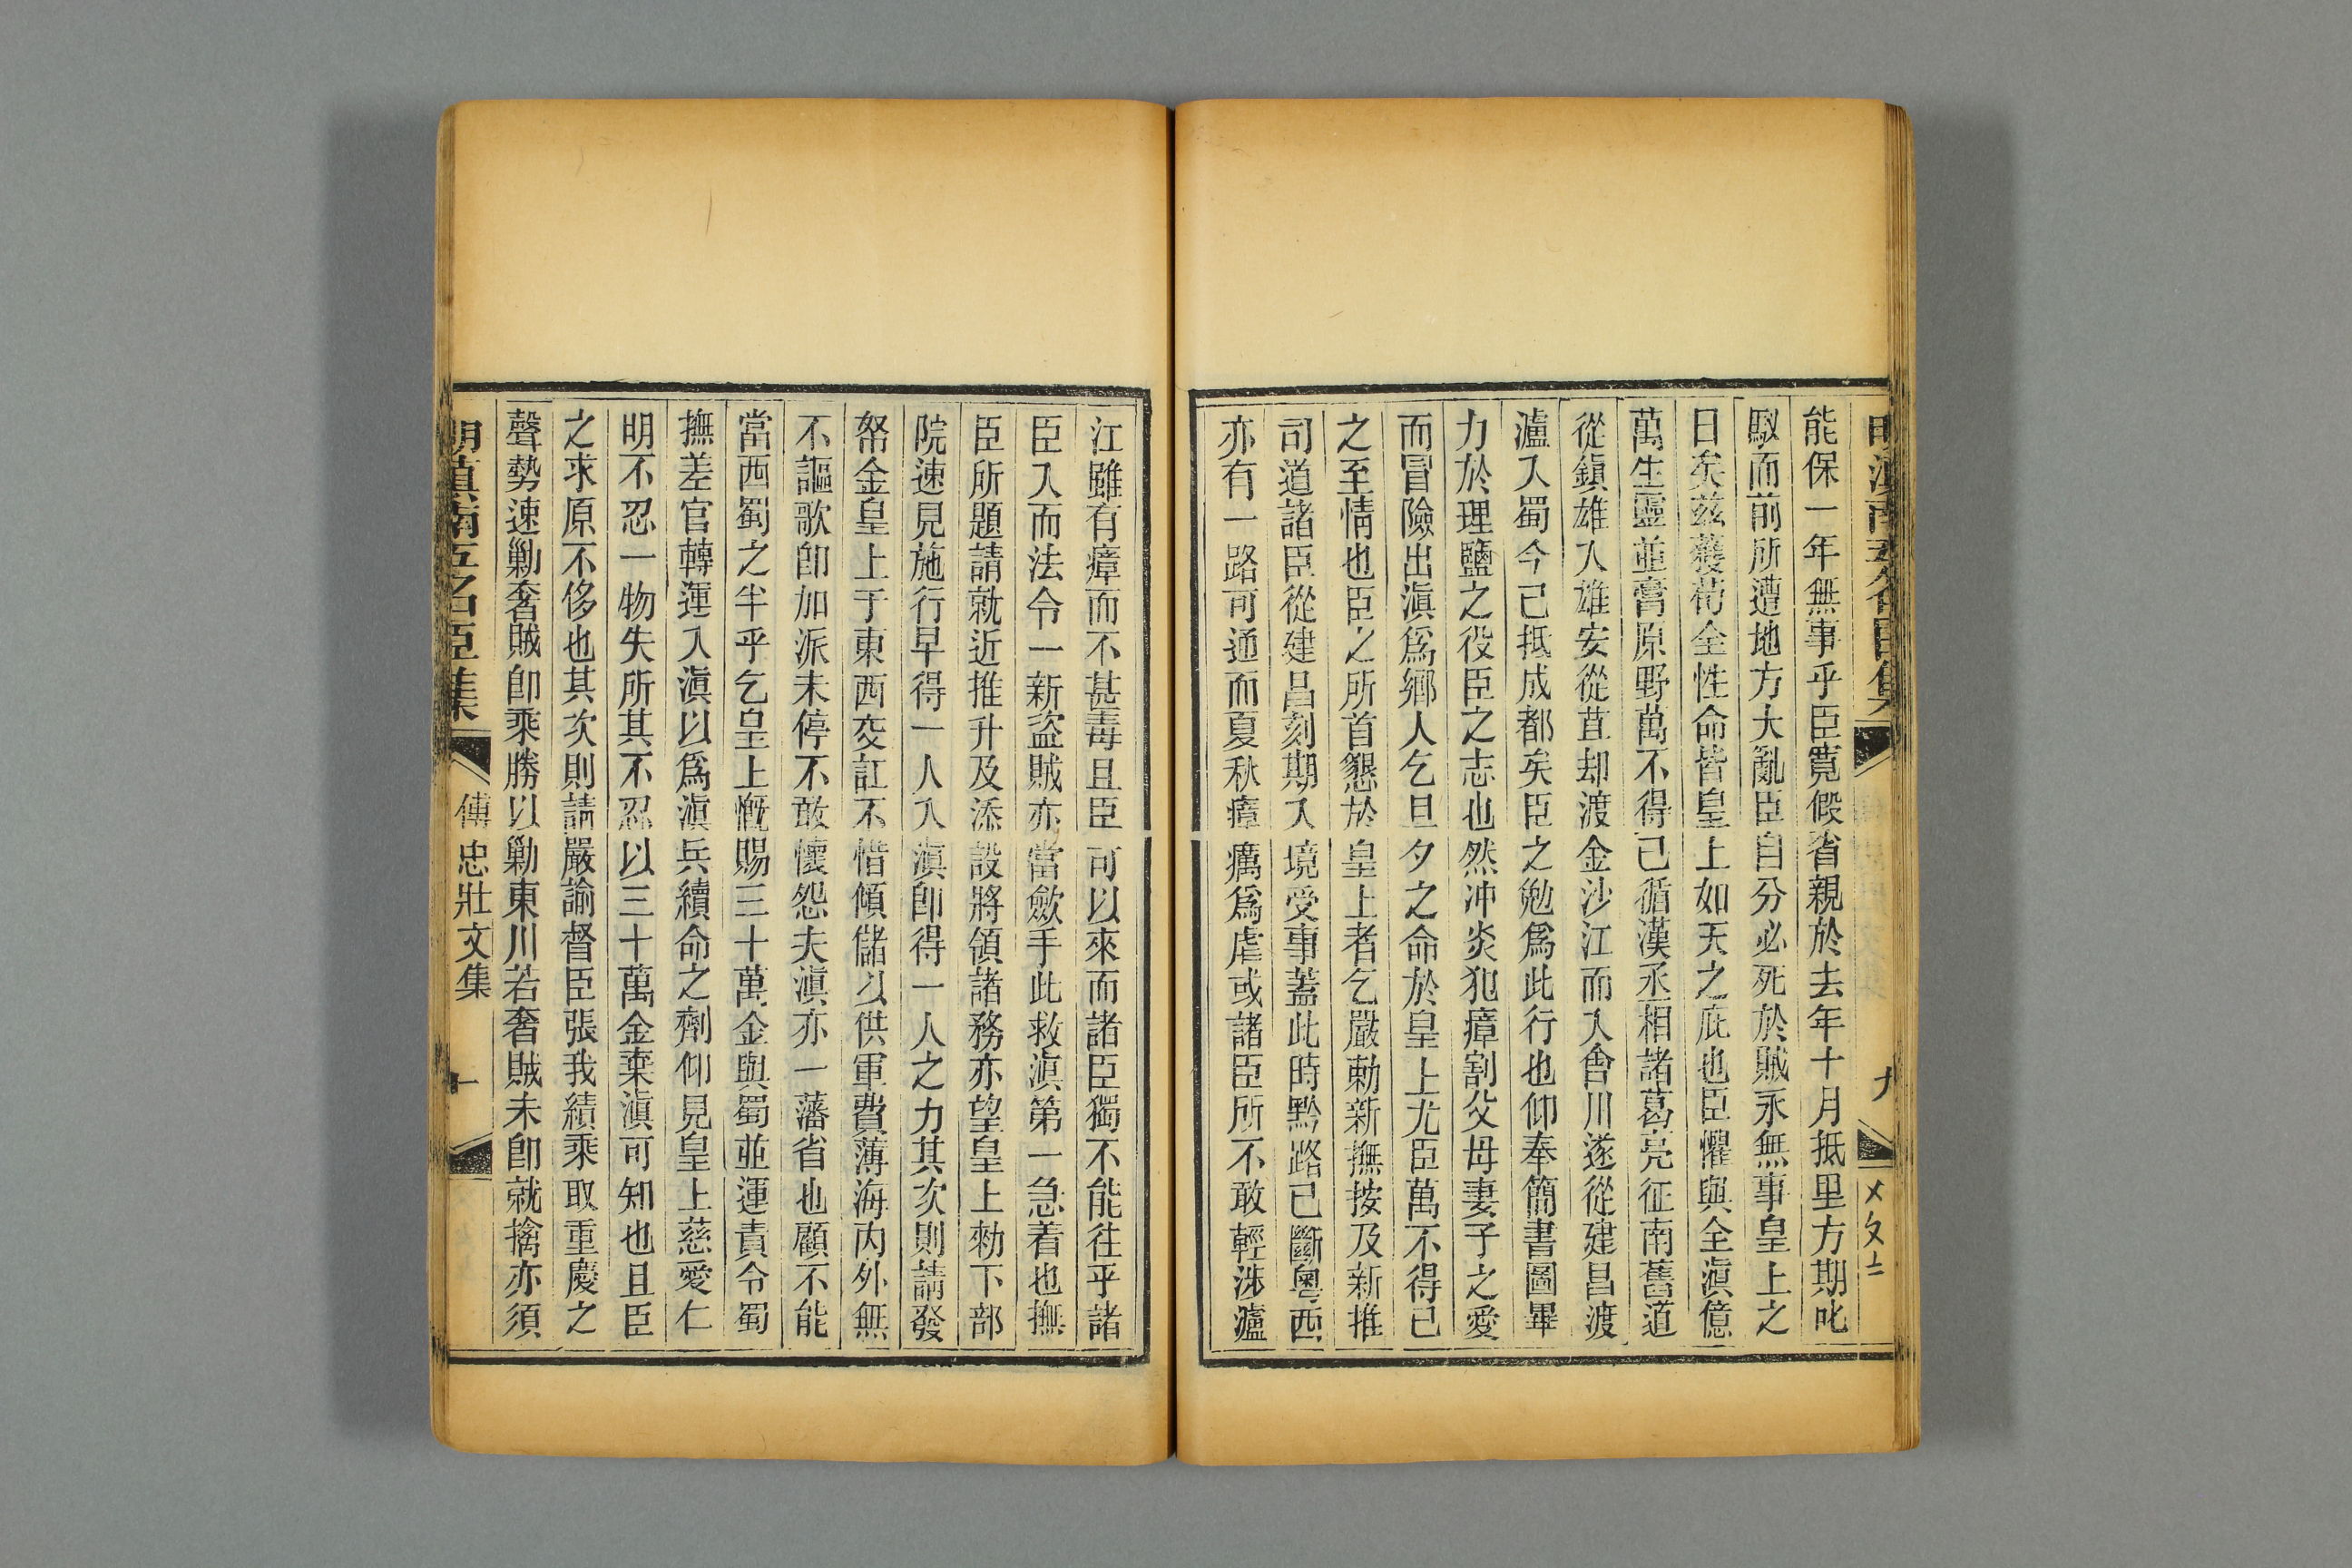 能保一年無事乎臣寬假省親於去年十月抵里方期叱
馭而前所遭地方大亂臣自分必死於賊永無事皇上之
日矣茲獲苟全性命皆皇上如天之庇也臣懼與全滇億
萬生靈並膏原野萬不得已循漢丞相諸葛亮征南舊道
從鎮雄入雄安從苴却渡金沙江而入會川遂從建昌渡
瀘入蜀今已抵成都矣臣之勉爲此行也仰奉簡書圖畢
力於理鹽之役臣之志也然冲炎犯瘴割父母妻子之愛
而冒險出滇爲鄉人乞旦夕之命於皇上尤臣萬不得已
之至情也臣之所首懇於皇上者乞嚴勅新撫按及新推
司道諸臣從建昌刻期入境受事蓋此時黔路已斷粵西
亦有一路可通而夏秋瘴癘爲虐或諸臣所不敢輕涉瀘
江雖有瘴而不甚毒且臣可以來而諸臣獨不能往乎諸
臣入而法令一新盜賊亦當歛手此救滇第一急着也撫
臣所題請就近推升及添設將領諸務亦望皇上勅下部
院速見施行早得一人入滇卽得一人之力其次則請發
帑金皇上于東西交訌不惜傾儲以供軍費薄海內外無
不謳歌卽加派未停不敢懷怨夫滇亦一藩省也顧不能
當西蜀之半乎乞皇上慨賜三十萬金與蜀並運責令蜀
撫差官轉運入滇以爲滇兵續命之劑仰見皇上慈愛仁
明不忍一物失所其不忍以三十萬金棄滇可知也且臣
之求原不侈也其次則請嚴諭督臣張我績乘取重慶之
聲勢速勦奢賊卽乘勝以勦東川若奢賊未卽就擒亦須
明滇南五名臣集
傅忠壯文集
十